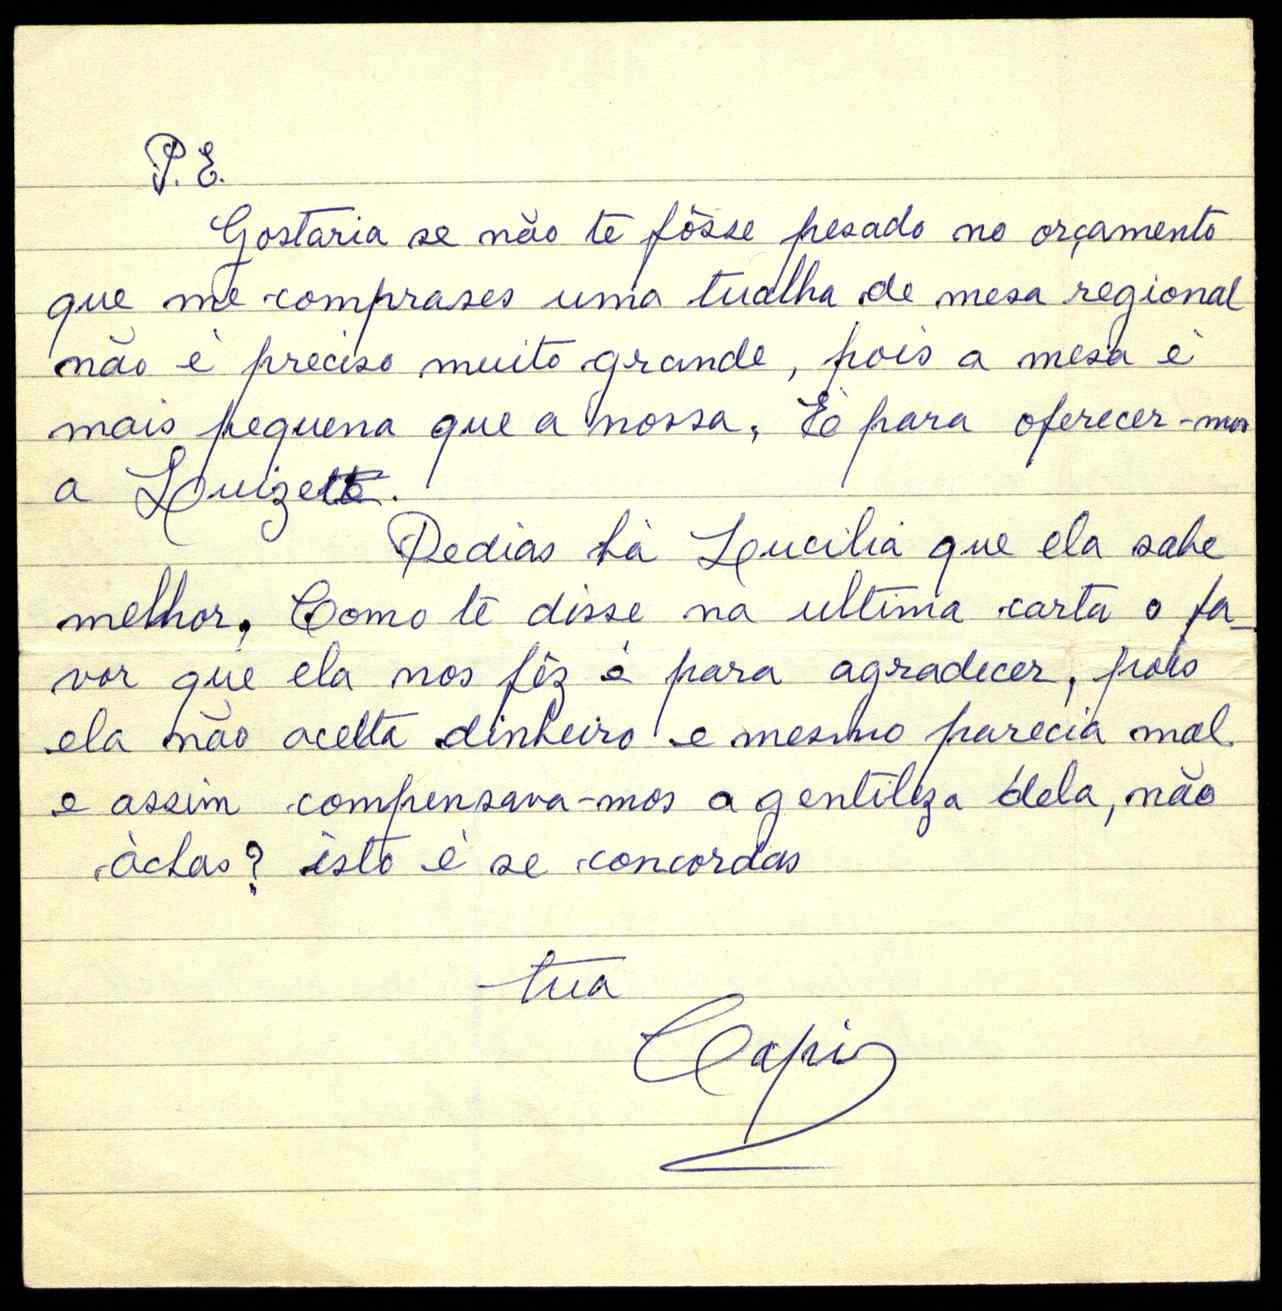 P.E.
Gostaria se não te fôsse pesado no orçamento
que me comprases uma tualha de mesa regional
não é preciso muito grande, pois a mesa é
mais pequena que a nossa, É para oferecer-mos
a Luizete.
Pedias há Lucilia que ela sabe
melhor. Como te disse na ultima carta o fa-
vor que ela nos fêz é para agradecer, pois
ela não aceita dinheiro e mesmo parecia mal
e assim compensava-mos a gentileza dela, não
áchas? isto é se concordas
tua
Capi